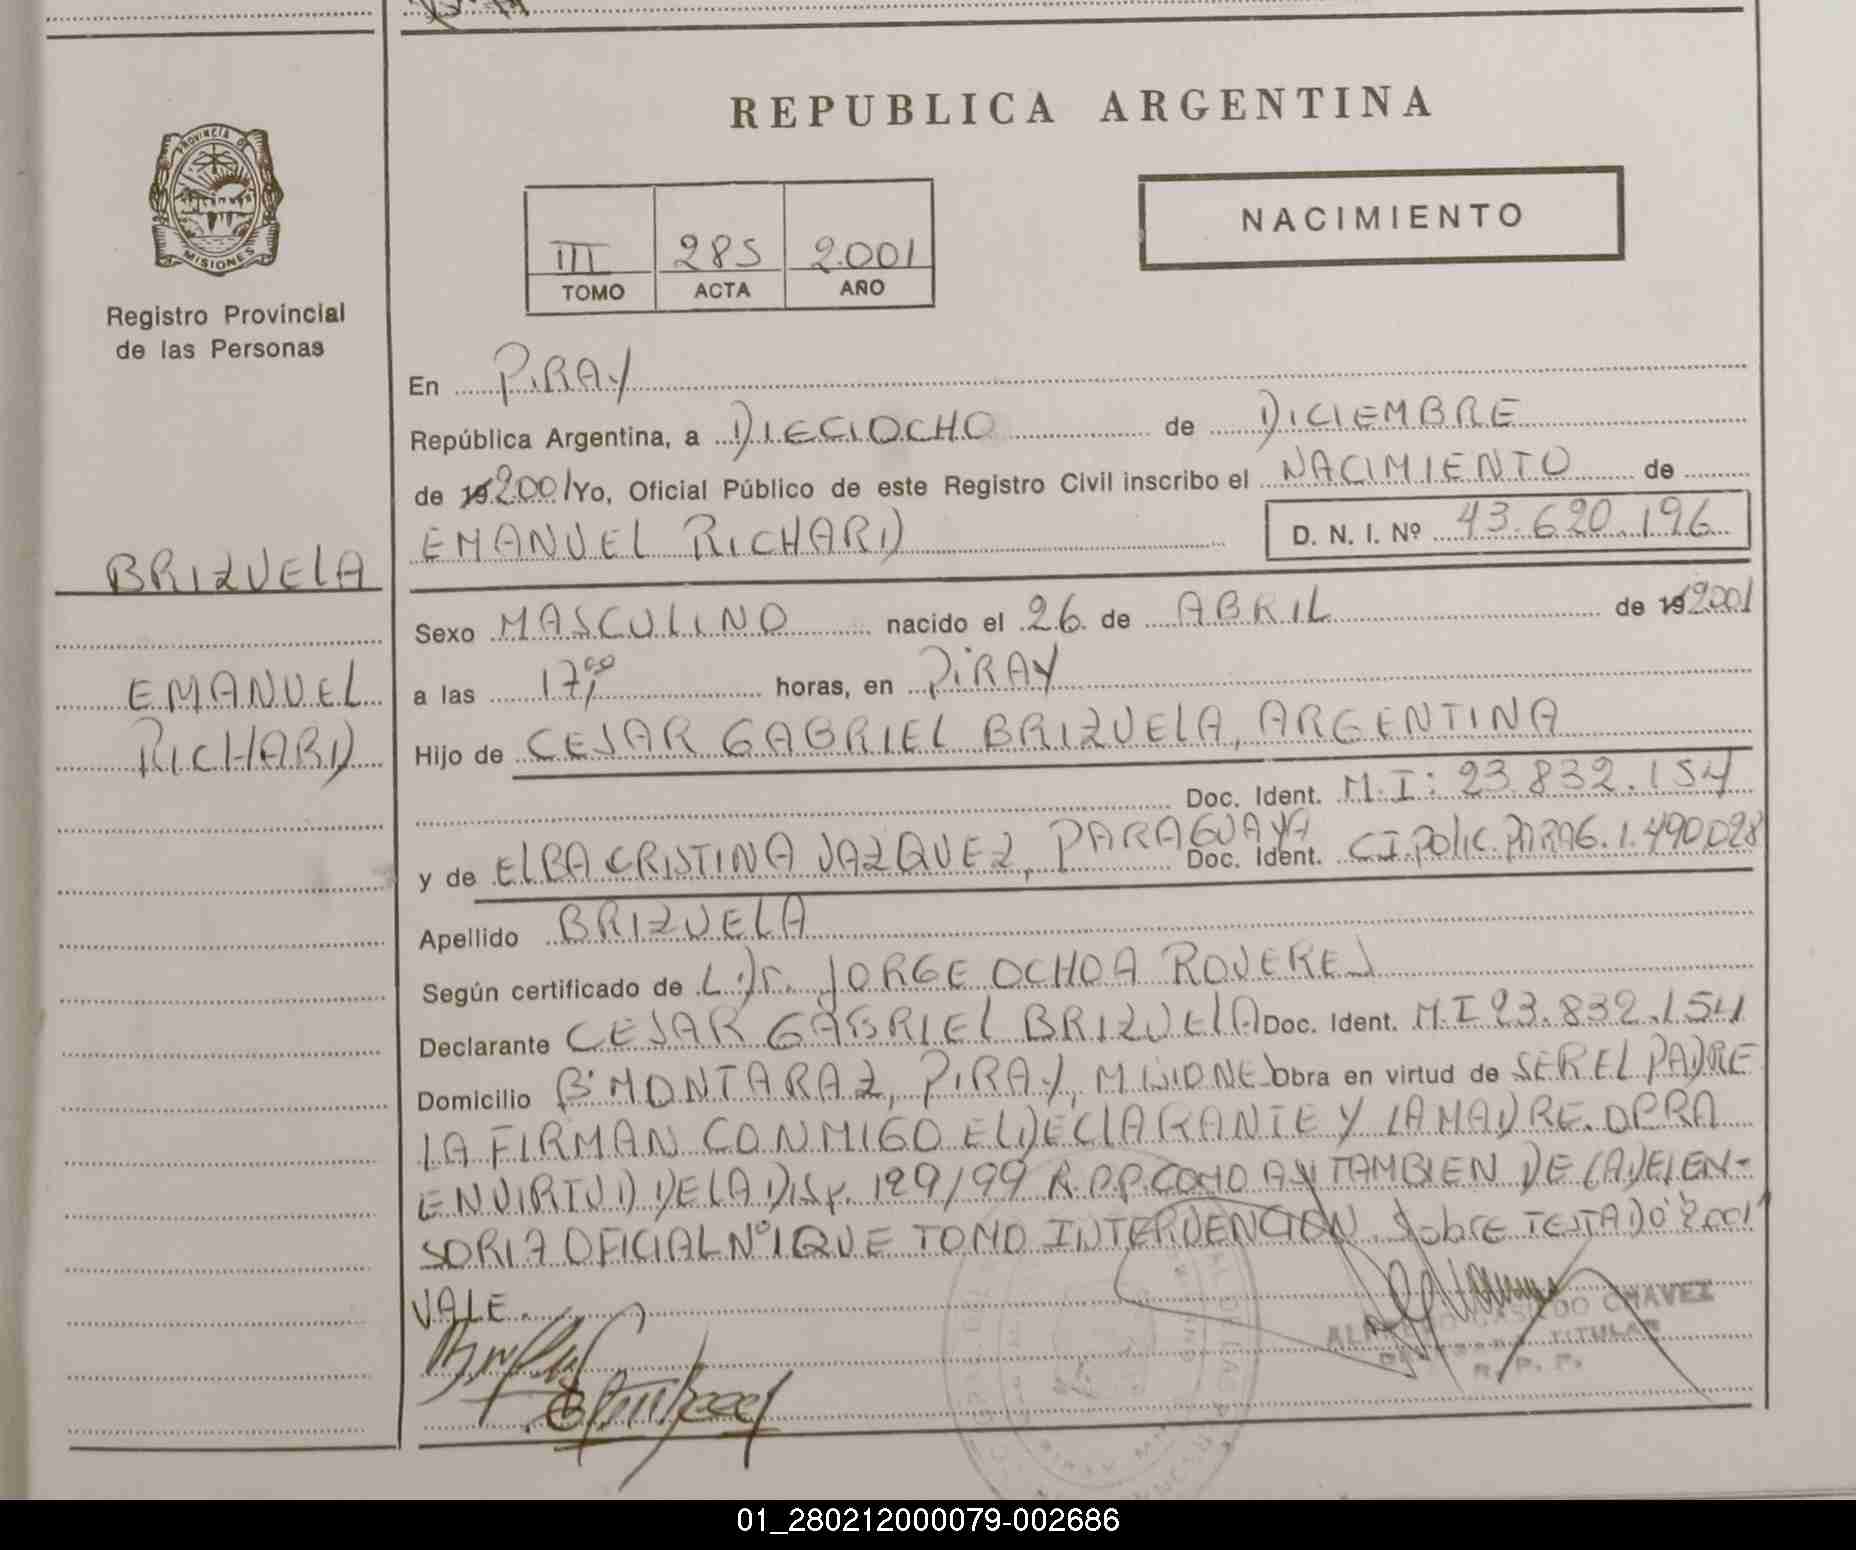 REPUBLICA ARGENTINA
PROVINCIA DE
MISIONES
Registro Provincial
de las Personas
III 285 2.001
TOMO ACTA AÑO
NACIMIENTO
En PIRAY
República Argentina, a DIECIOCHO de DICIEMBRE
de 19 2001 Yo, Oficial Público de este Registro Civil inscribo el NACIMIENTO de
EMANUEL RICHARD D. N. I. Nº 43.620.196
BRIZUELA
EMANUEL
RICHARD
Sexo MASCULINO nacido el 26 de ABRIL de 19 2001
a las 17,00 horas, en PIRAY
Hijo de CESAR GABRIEL BRIZUELA, ARGENTINA
Doc. Ident. M.I: 23.832.154
y de ELBA CRISTINA VAZQUEZ, PARAGUAYA Doc. Ident. C.I. POLIC. PARAG. 1.490.028
Apellido BRIZUELA
Según certificado de L Dr. JORGE OCHOA ROVERES
Declarante CESAR GABRIEL BRIZUELA Doc. Ident. M.I 23.832.154
Domicilio Bº MONTARAZ, PIRAY, MISIONES Obra en virtud de SER EL PADRE
LA FIRMAN CONMIGO EL DECLARANTE Y LA MADRE. OBRA
EN VIRTUD DE LA Disp. 129/99 R.P.P. COMO ASI TAMBIEN DE LA DEFEN-
SORIA OFICIAL Nº 1 QUE TOMO INTERVENCION. Sobre TESTADO "2001"
VALE.
CHAVEZ
TITULAR
R. P. P.
01_280212000079-002686